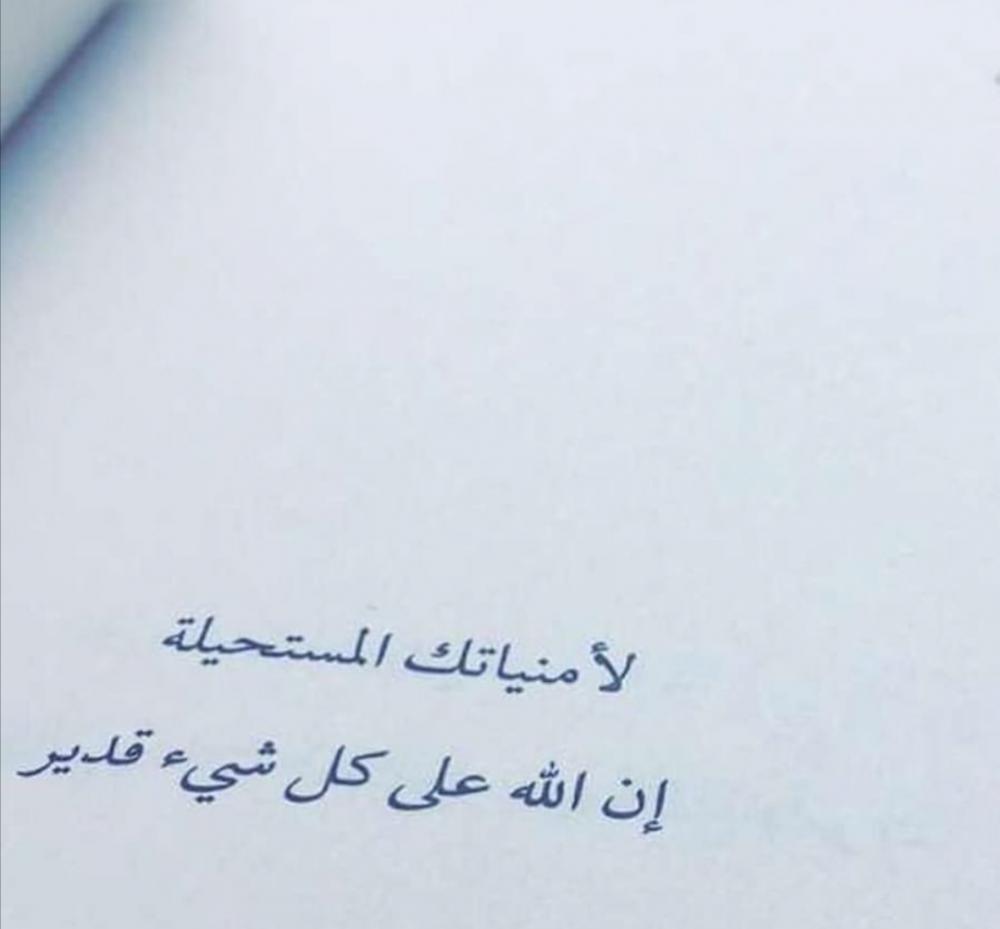 لأمنياتك المستحيلة
إن الله على كل شيء قدير